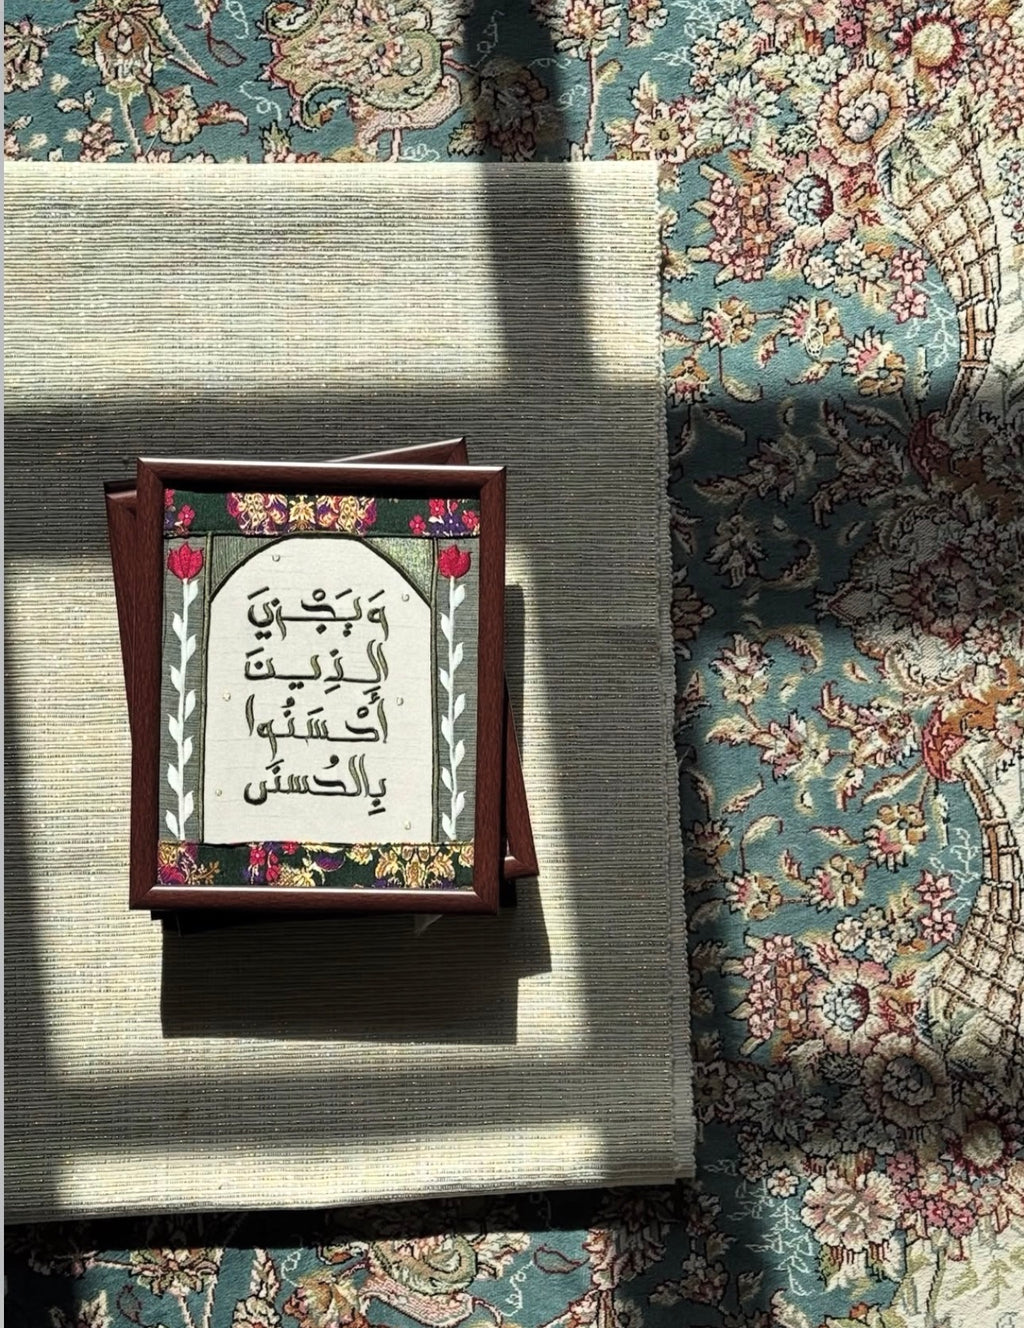 وَيَجْزِيَ
الَذِينَ
أَحْسَنُوا
بِالحُسنَى